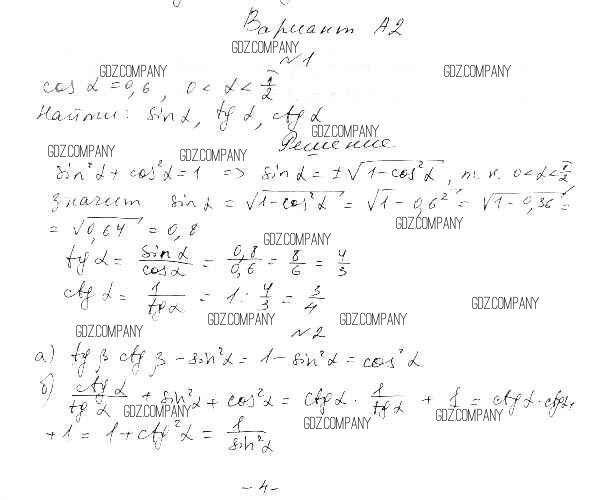 Вариант А2
GDZ.COMPANY
№1
GDZ.COMPANY GDZ.COMPANY
cos α = 0,6, 0 < α < π/2
Найти: sin α, tg α, ctg α
GDZ.COMPANY
Решение.
GDZ.COMPANY GDZ.COMPANY
sin²α + cos²α = 1 => sin α = ±√(1-cos²α), т.к. 0<α<π/2
значит sin α = √(1-cos²α) = √(1-0,6²) = √(1-0,36) =
GDZ.COMPANY
= √0,64 = 0,8
GDZ.COMPANY
tg α = sin α/cos α = 0,8/0,6 = 8/6 = 4/3
ctg α = 1/tg α = 1 : 4/3 = 3/4
GDZ.COMPANY
GDZ.COMPANY GDZ.COMPANY
GDZ.COMPANY
№2
а) tg β ctg β - sin²α = 1 - sin²α = cos²α
б) ctg α/tg α + sin²α + cos²α = ctg α · 1/tg α + 1 = ctg α · ctg α +
GDZ.COMPANY GDZ.COMPANY GDZ.COMPANY
+ 1 = 1 + ctg²α = 1/sin²α
- 4 -